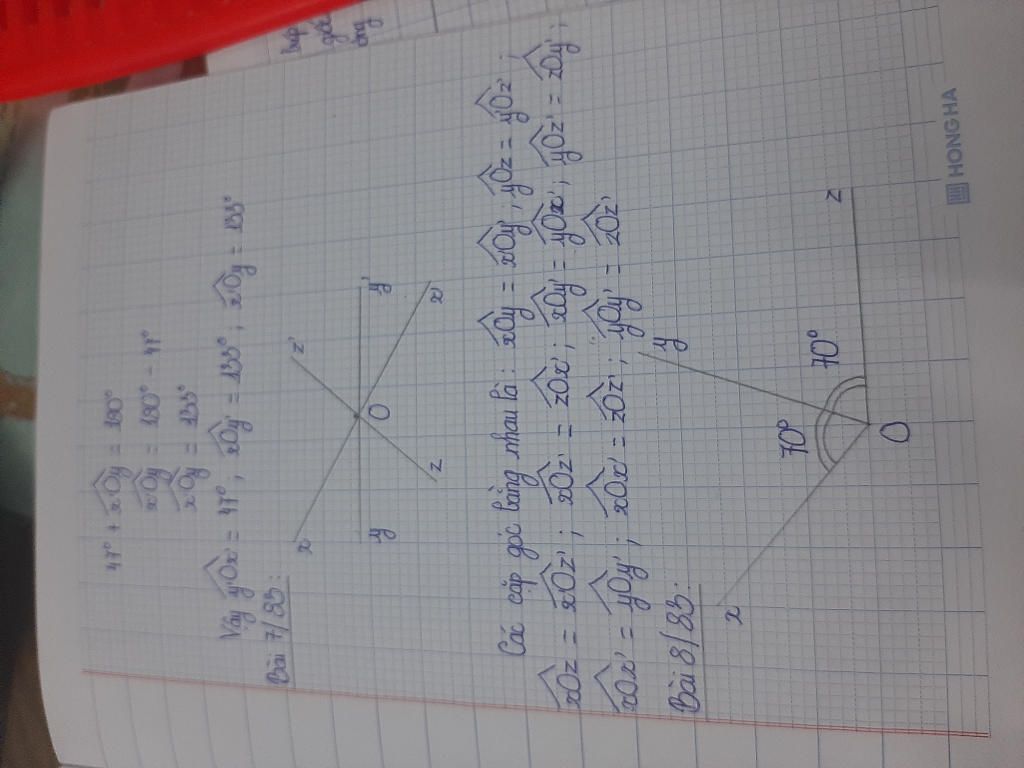 47° + x'Oy = 180°
x'Oy = 180° - 47°
x'Oy = 133°
Vậy y'Ox' = 47° ; xOy' = 133° ; x'Oy = 133°
Bài 7/83:
x
z'
y
O
y'
z
x'
Các cặp góc bằng nhau là : xOy = x'Oy' ; yOz = y'Oz' ;
x'Oz = xOz' ; xOz' = zOx' ; xOy' = yOx' ; yOz' = zOy' ;
xOx' = yOy' ; xOx' = zOz' ; yOy' = zOz'
Bài 8/83:
x
y
z
70°
70°
O
HONG HA